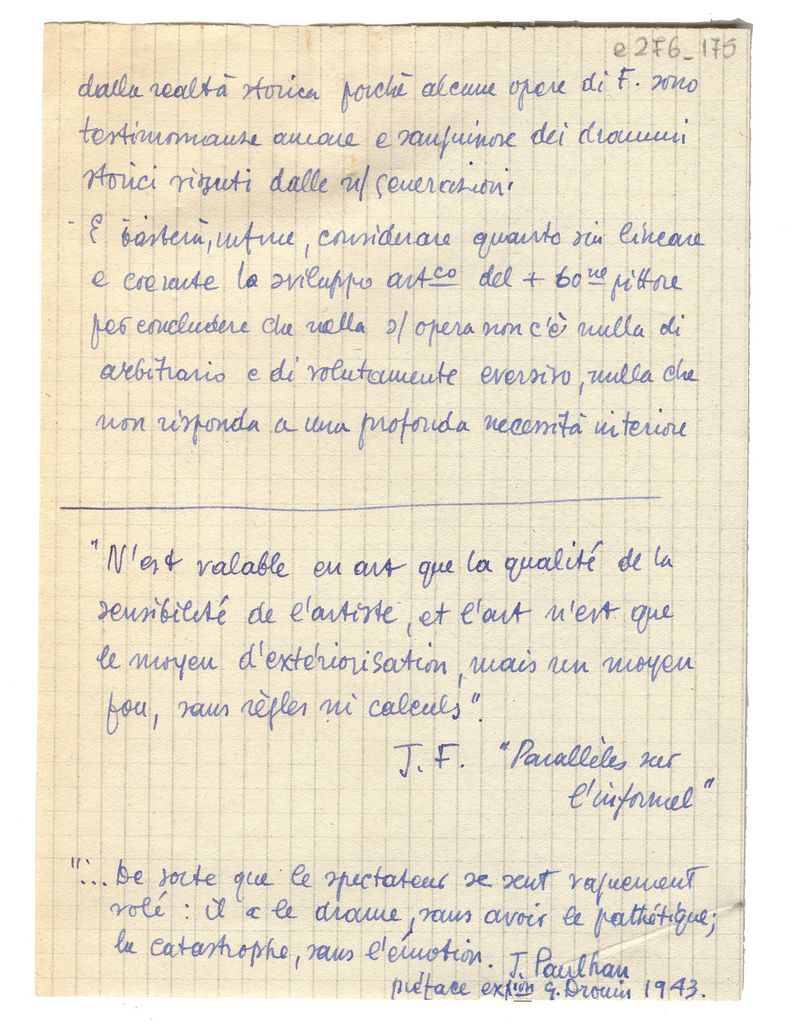 e 276_175
dalla realtà storica poichè alcune opere di F. sono
testimonianze amare e sanguinose dei drammi
storici vissuti dalle n/ generazioni.
- E basterà, infine, considerare quanto sia lineare
e coerente lo sviluppo artco del + 60ne pittore
per concludere che nella s/ opera non c'è nulla di
arbitrario e di volutamente eversivo, nulla che
non risponda a una profonda necessità interiore
"N'est valable en art que la qualité de la
sensibilité de l'artiste, et l'art n'est que
le moyen d'extériorisation, mais un moyen
fou, sans règles ni calculs".
J. F. "Parallèles sur
l'informel"
"... De sorte que le spectateur se sent vaguement
volé : il a le drame, sans avoir le pathétique;
la catastrophe, sans l'émotion. J. Paulhan
préface extion G. Drouin 1943.